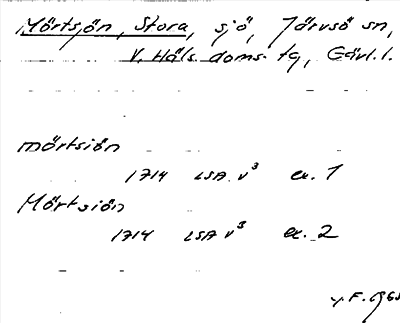 Mörtsjön, Stora, sjö, Järvsö sn,
V. Häls. doms. tg, Gävl. l.
mörtsiön
1714 LSA V³ ex. 1
Mörtsiön
1714 LSA V³ ex. 2
F. 1965